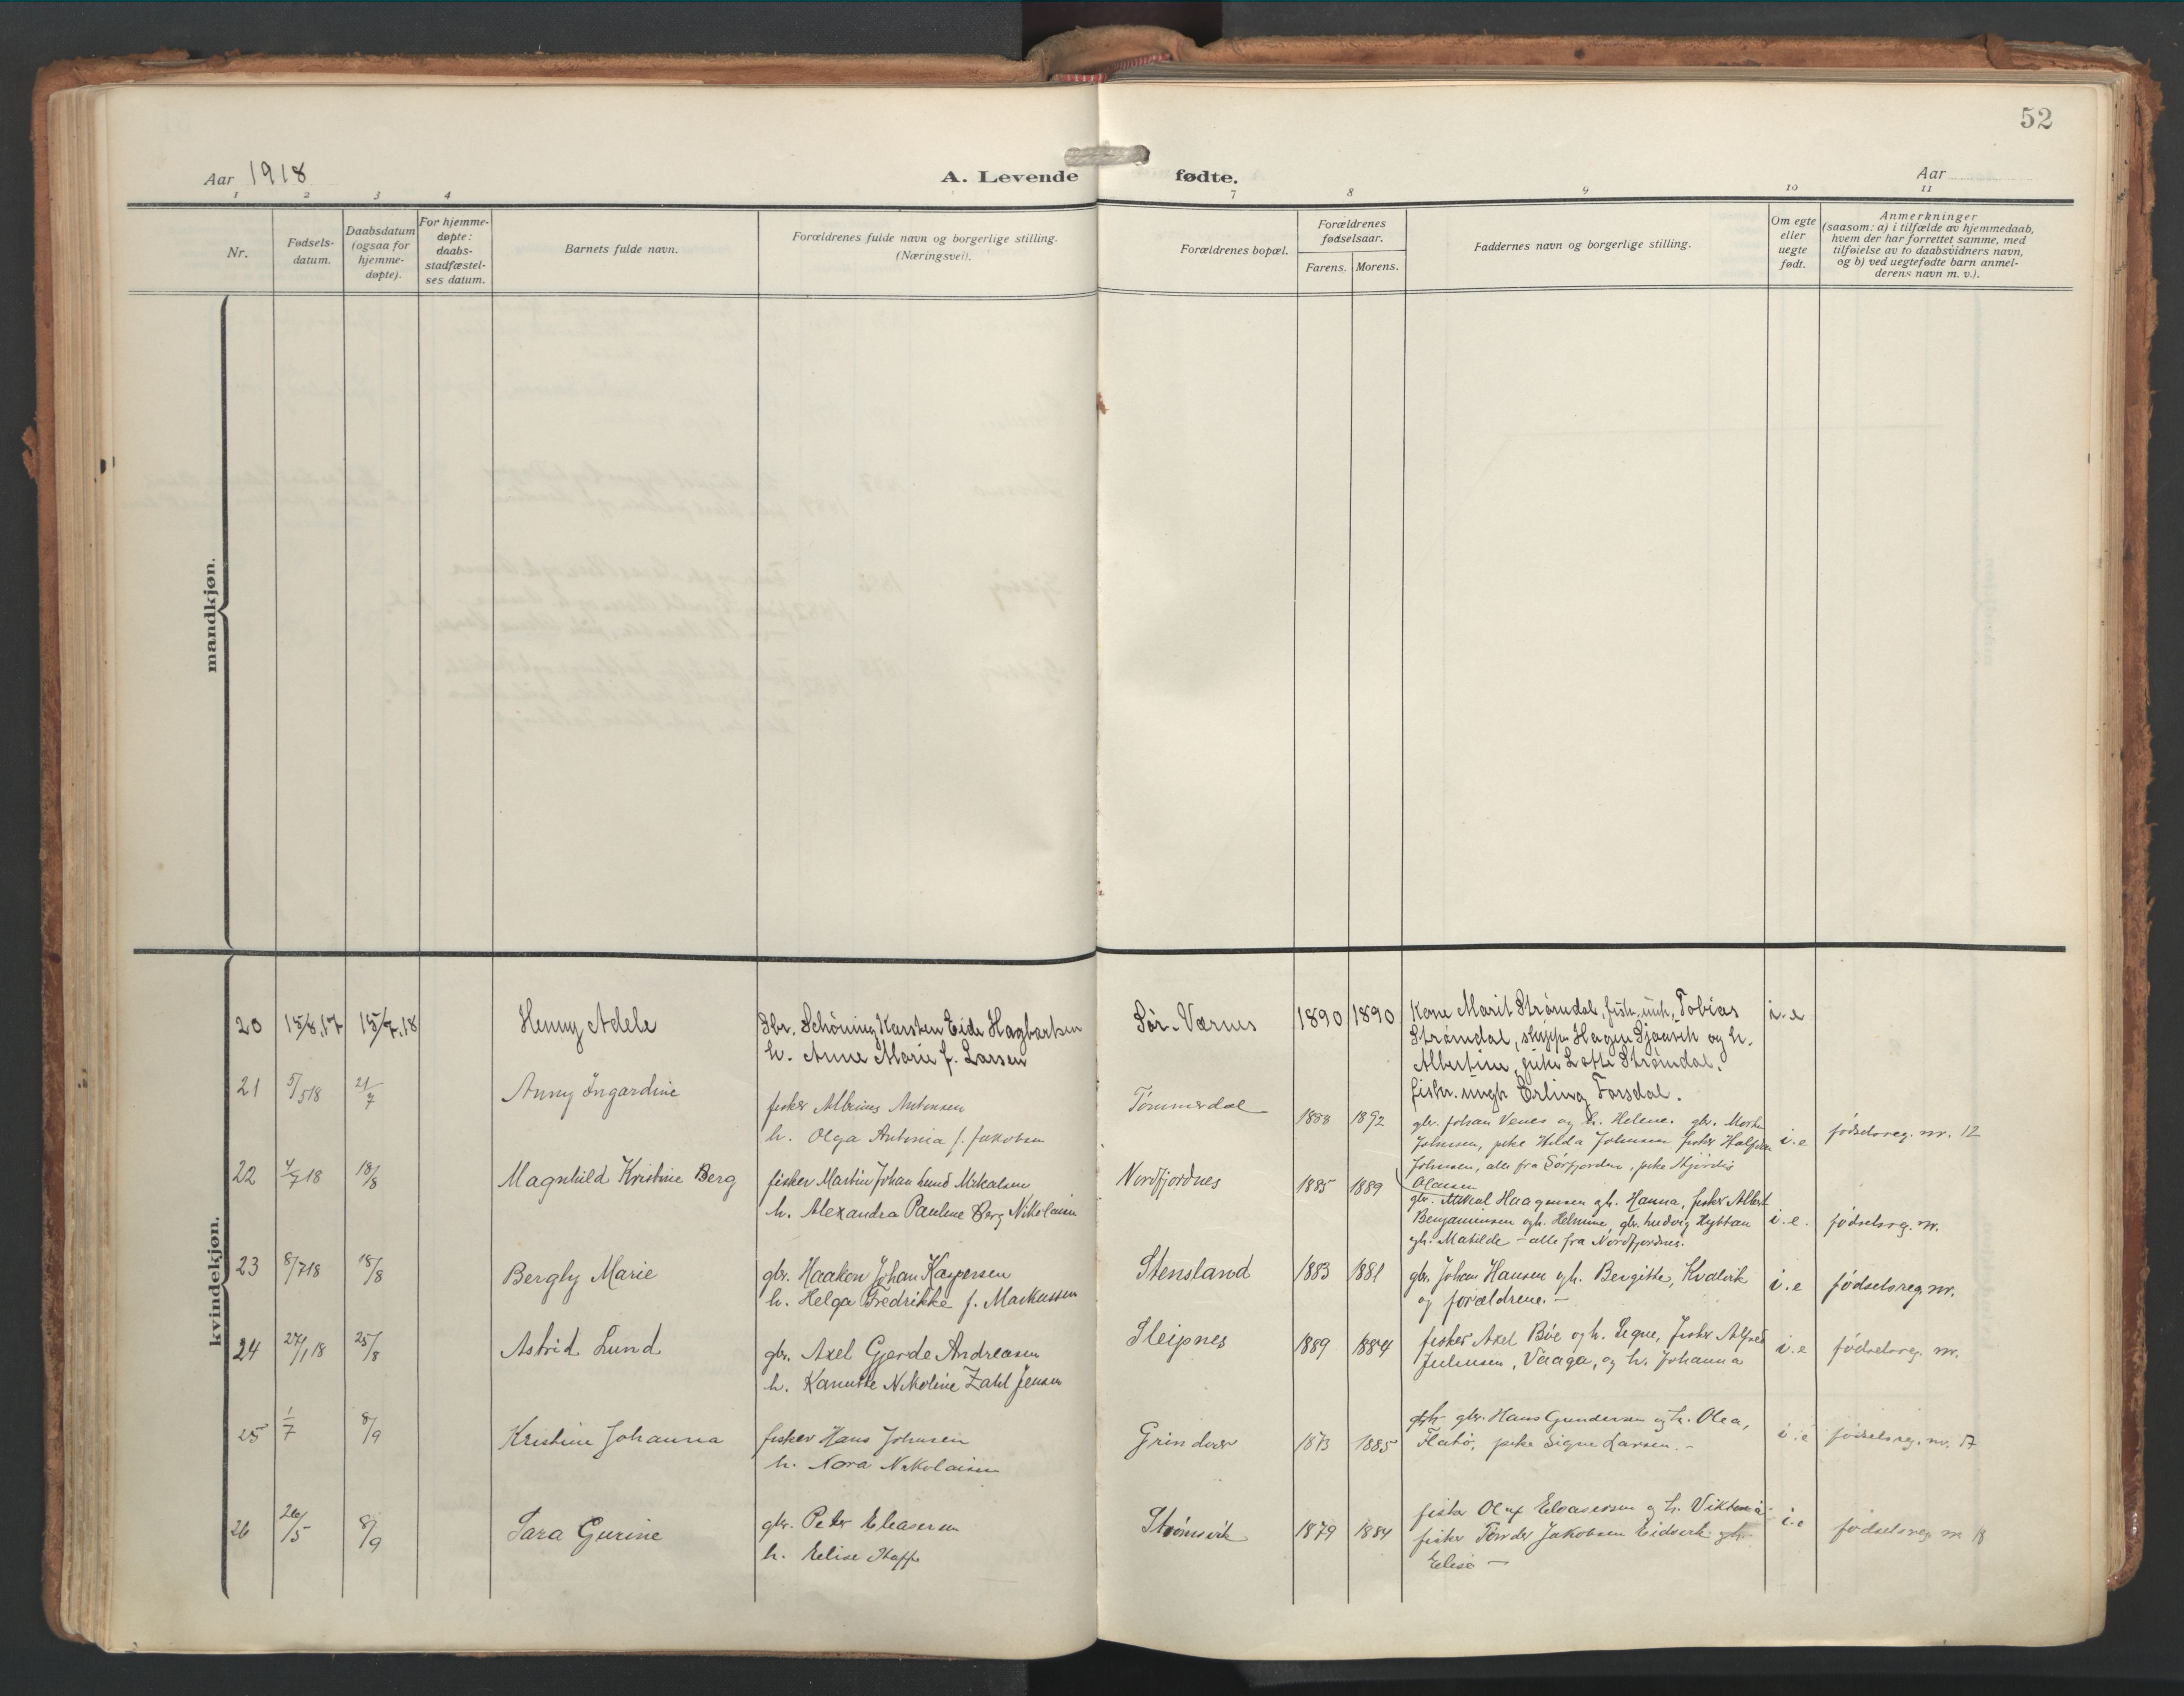 52
Aar 1918
A. Levende fødte.
Aar
1 2 3 4 7 8 9 10 11
Nr.
Fødsels-
datum.
Daabsdatum
(ogsaa for
hjemme-
døpte).
For hjemme-
døpte:
daabs-
stadfæstel-
ses datum.
Barnets fulde navn.
Forældrenes fulde navn og borgerlige stilling.
(Næringsvei).
Forældrenes bopæl.
Forældrenes
fødselsaar.
Farens. Morens.
Faddernes navn og borgerlige stilling.
Om egte
eller
uegte
født.
Anmerkninger
(saasom: a) i tilfælde av hjemmedaab,
hvem der har forrettet samme, med
tilføielse av to daabsvidners navn,
og b) ved uegtefødte barn anmel-
derens navn m. v.).
mandkjøn.
kvindekjøn.
20 15/8.17 15/7.18 Henny Adele
Gbr. Schöning Karsten Eide Hagbartsen
h. Anne Marie f. Larsen
Sør-Værnes 1890 1890
Kone Marit Strømdal, fisk. ungk. Tobias
Strømdal, skipper Hagen Sjaavik og h.
Albertine, pike Lotte Strømdal,
fisker ungk Erling Forsdal.
i.e
21 5/5 18 21/7 Anny Ingardine
fisker Albrines Antonsen
h. Olga Antonia f. Jakobsen
Tømmerdal 1888 1892
gbr. Johan Venes og h. Helene. gbr. Morten
Johnsen, pike Hilda Johnsen fisker Halfdan
Johnsen, alle fra Sørfjorden, pike Hjördis
Olausen
i.e fødselsreg. nr. 12
22 4/7 18 18/8 Magnhild Kristine Berg
fisker Martin Johan Lund Mikalsen
h. Alexandra Pauline Berg Nikolaisen
Nordfjordnes 1885 1889
gbr. Mikal Haagensen og h. Hanna, fisker Albert
Benjaminsen og h. Helmine, gbr. Ludvig Hybban
og h. Matilde – alle fra Nordfjordnes.
i.e. fødselsreg. nr.
23 8/7 18 18/8 Bergly Marie
gbr. Haakon Johan Kaspersen
h. Helga Fredrikke f. Markussen
Stensland 1883 1881
gbr. Johan Hansen og h. Bergitte, Kvalvik
og forældrene. –
i.e fødselsreg. nr.
24 27/1 18 25/8 Astrid Lund
gbr. Axel Gjerde Andreasen
h. Kanutte Nikoline Zahl Jensen
Sleipnes 1889 1884
fisker Axel Böe og h. Signe, fisker Alfred
Juliusen, Vaaga, og h. Johanna
i.e fødselsreg. nr.
25 1/7 8/9 Kristine Johanna
fisker Hans Johnsen
h. Nora Nikolaisen
Grindvær 1873 1885
gbr. Hans Gundersen og h. Olea,
Flatö, pike Signe Larsen. –
i.e fødselsreg. nr. 17
26 26/5 8/9 Sara Gurine
gbr. Peter Eleasersen
h. Elise Stoff
Strömsvik 1879 1884
fisker Oluf Eleasersen og h. Viktoria
fisker Tønder Jakobsen Eidsvik og h.
Elise –
i.e fødselsreg nr 18